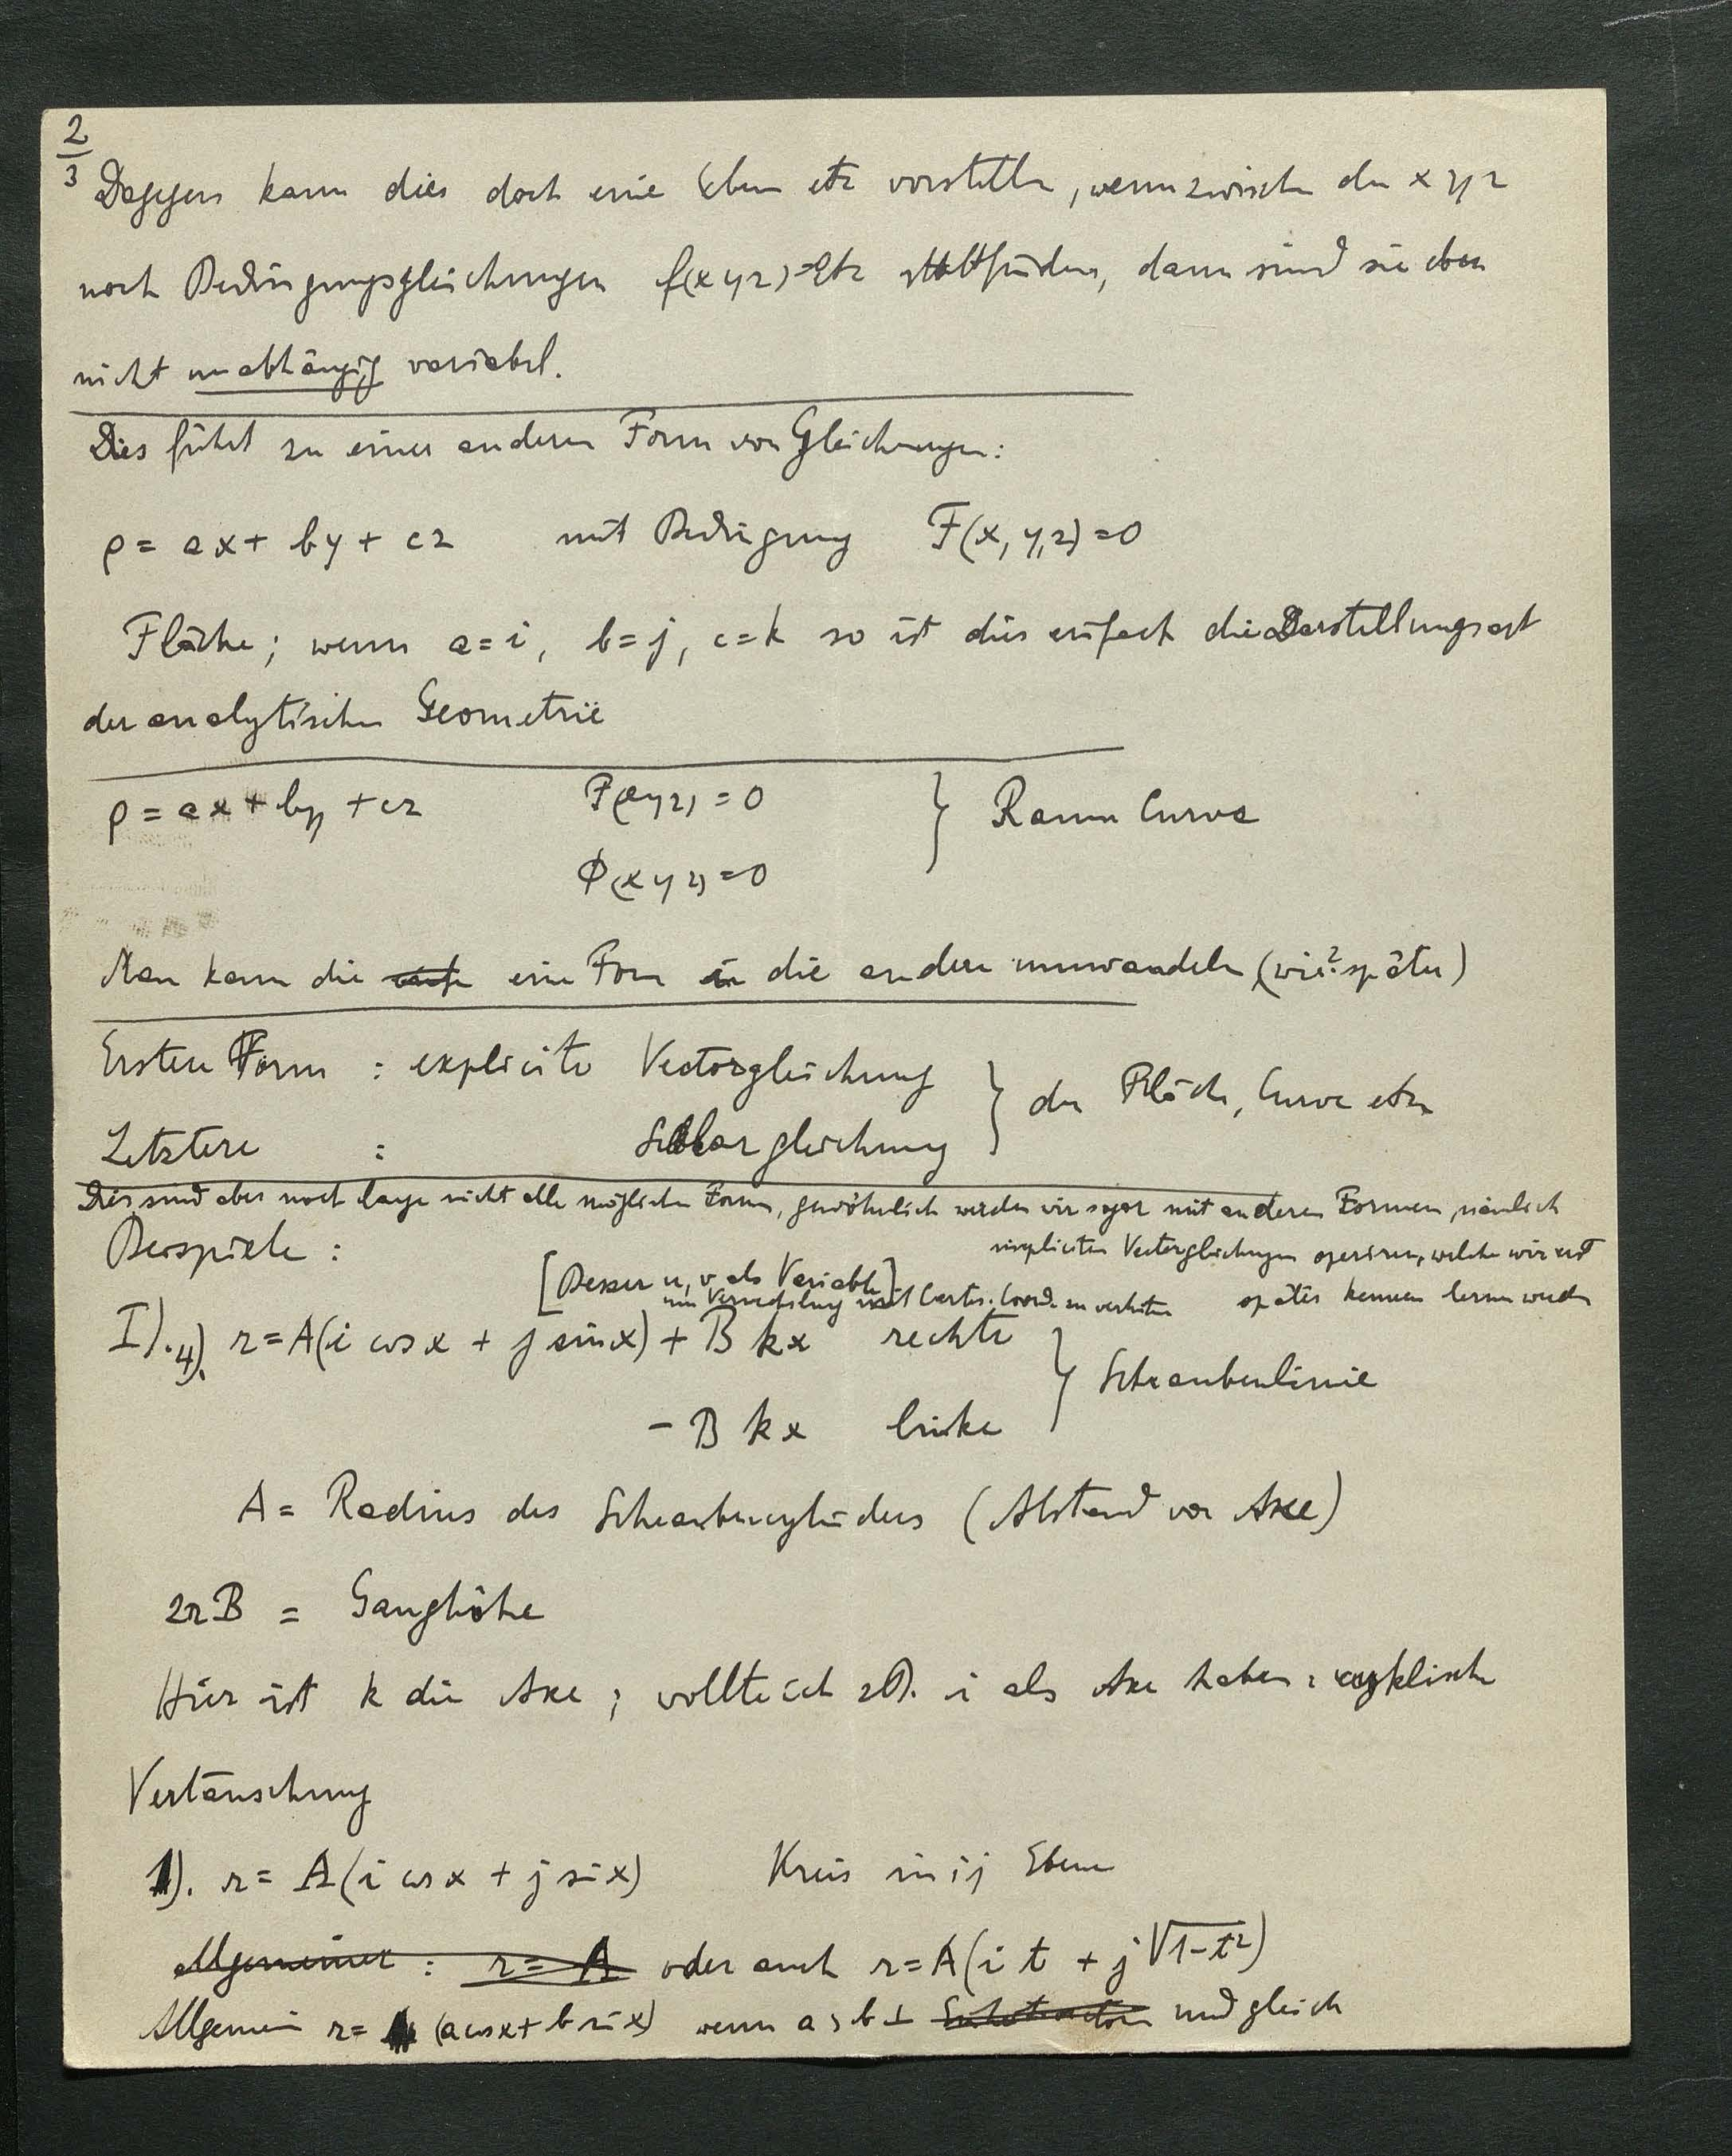 2/3
Dagegen kann dies doch eine Ebene etc vorstellen, wenn zwischen den x y z
noch Bedingungsgleichungen f(x y z)=0 etc stattfinden, dann sind sie eben
nicht unabhängig variabel.
Dies führt zu einer anderen Form von Gleichungen:
ρ = ax + by + cz mit Bedingung F(x, y, z) = 0
Fläche; wenn a = i, b = j, c = k so ist dies einfach die Darstellungsart
der analytischen Geometrie
ρ = ax + by + cz F(xyz) = 0 } Raum Curve
Φ(xyz) = 0
Man kann die eine Form in die andere umwandeln (wie? später)
Erstere Form : explicite Vectorgleichung } der Fläche, Curve etc
Letztere : Scalargleichung
Dies sind aber noch lange nicht alle möglichen Formen, gewöhnlich werden wir sogar mit anderen Formen, nämlich
impliciten Vectorgleichungen operiren, welche wir erst
später kennen lernen werden
Beispiele :
[Besser u, v als Variable]
um Verwechslung mit Cartes. Coord. zu verhüten
I). 4). r = A(i cos x + j sin x) + B k x rechte } Schraubenlinie
- B k x linke
A = Radius des Schraubencylinders (Abstand von Axe)
2πB = Ganghöhe
Hier ist k die Axe ; wollte ich zB. i als Axe haben : cyklische
Vertauschung
1). r = A(i cos x + j sin x) Kreis in ij Ebene
Allgemeiner : r = A oder auch r = A(i t + j √1-t²)
Allgemein r = (a cos x + b sin x) wenn a, b ⊥ und gleich